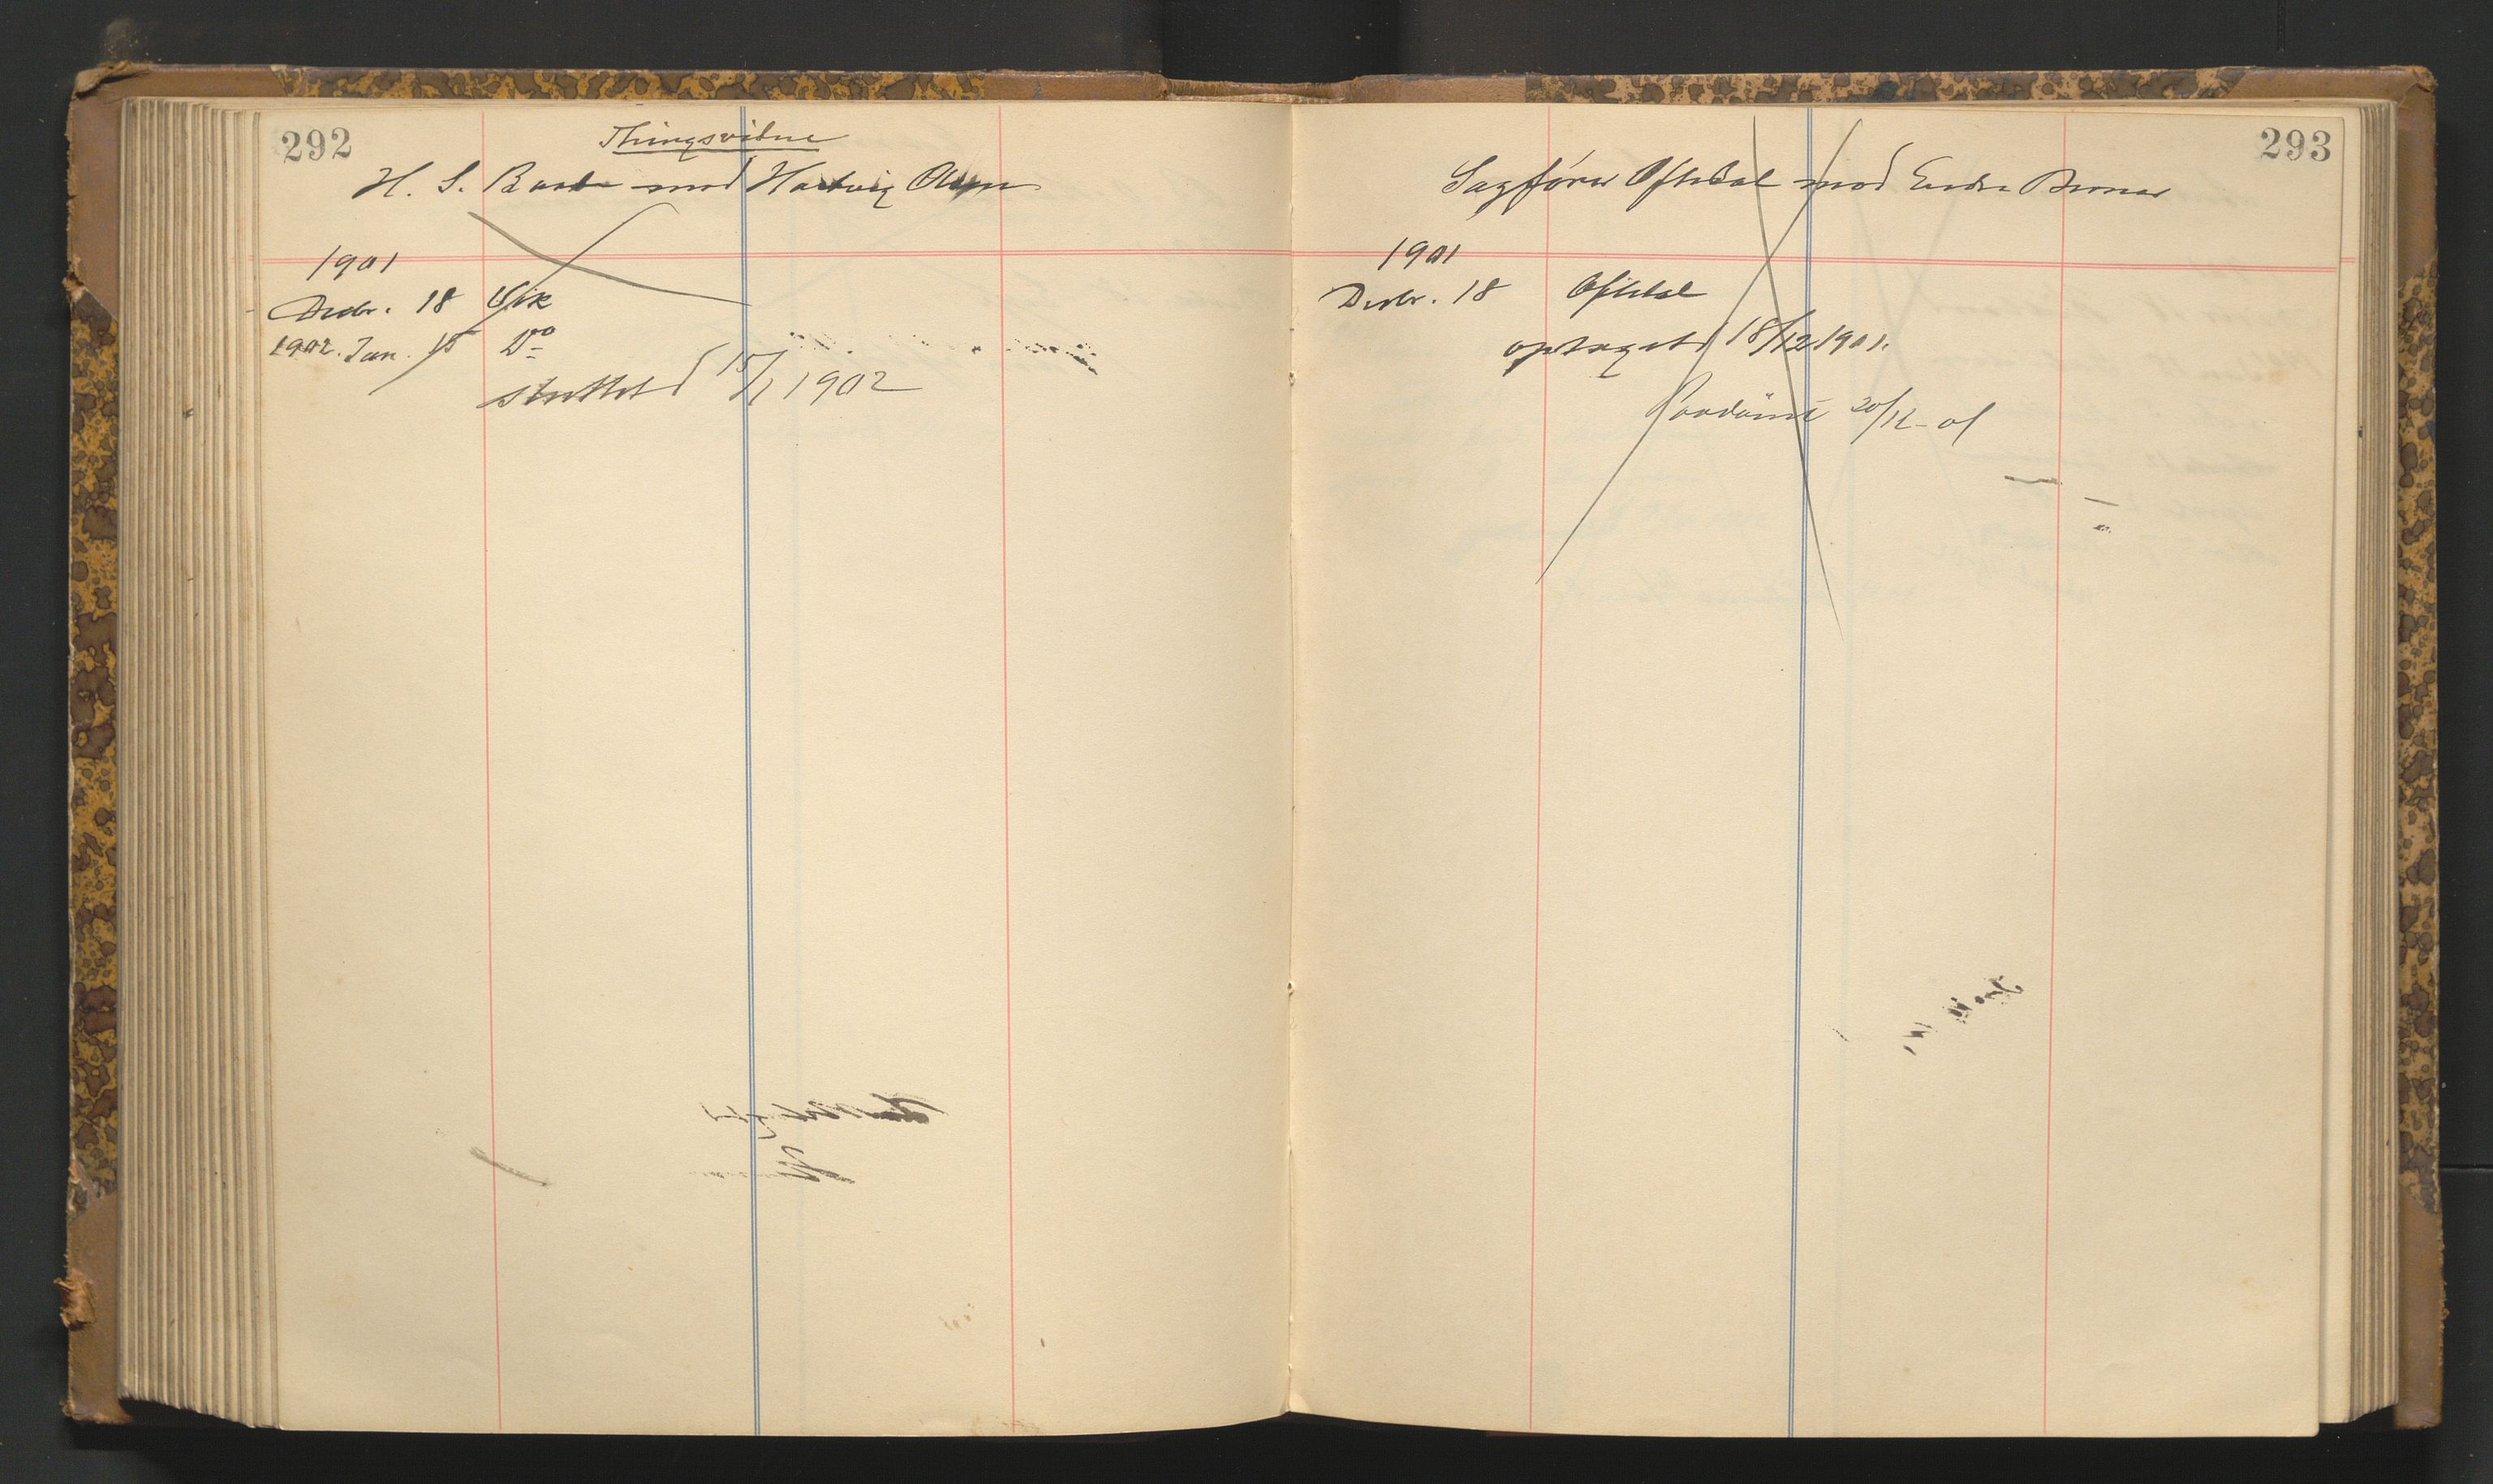 292
Thingsvidne
H. S. Baade mod Hartvig Olsen
1901
Decbr. 18 Vik
1902. Jan. 15 Do
sluttet d 15/1 1902
293
Sagfører Oftedal mod Endre
1901
Decbr. 18 Oftedal
optaget d 18/12 1901.
Paadömt 20/12-01